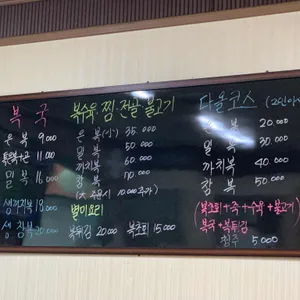 복국
은 복 9,000
11,000
밀 복 16,000
생 18,000
생 참복 20,000
복수육·찜·전골·불고기
은 복(小) 35.000
밀 복 50.000
까치복 60.000
참 복 110.000
(大 주문시 10.000추가)
별미요리
복튀김 20.000 복초회 15.000
다올코스 (2인이상
은 복 20.000
밀 복 30.000
까치복 40.000
참 복 50.000
(복초회+죽+수육+불고기
복국+복튀김
5.000